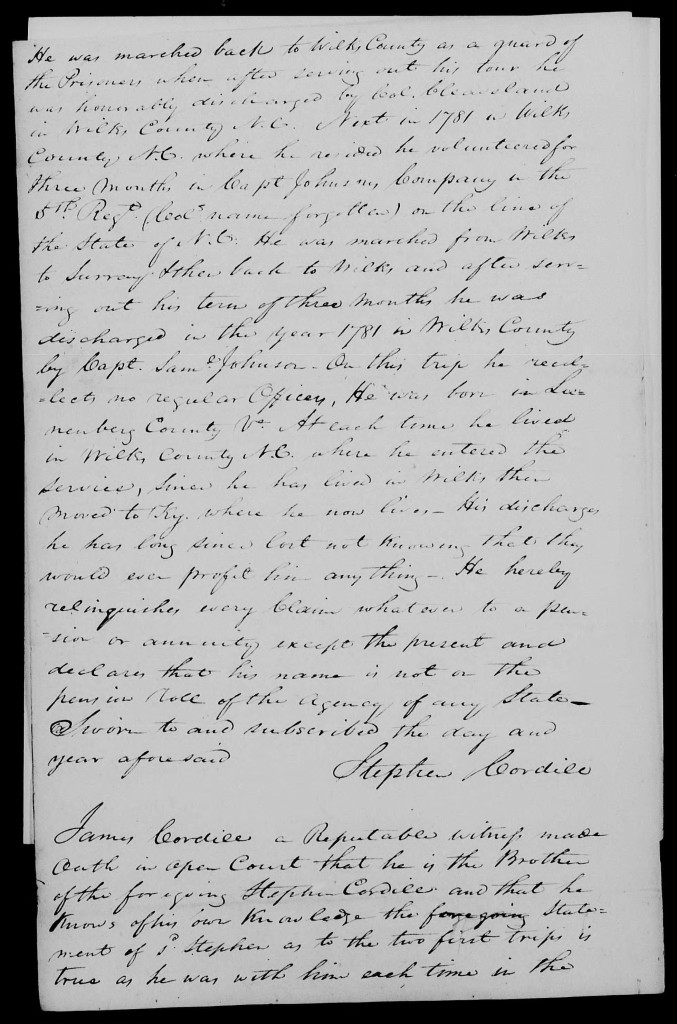 He was marched back to Wilks County as a guard of
the Prisoners when after serving out his tour he
was honorably discharged by Col. Cleaveland
in Wilks County N.C. Next in 1781 in Wilks
County N.C. where he resided he volunteered for
three months in Capt Johnsons Company in the
5th Regt. (Cols name forgotten) on the line of
the State of N.C. He was marched from Wilks
to Surrey & then back to Wilks and after serv=
=ing out his term of three months he was
discharged in the year 1781 in Wilks County
by Capt. Saml Johnson - On this trip he recol=
=lects no regular Officers, He was born in Lu=
=nenberg County Va. At each time he lived
in Wilks County N.C. where he entered the
service, since he has lived in Wilks then
moved to Ky. where he now lives - His discharges
he has long since lost not knowing that they
would ever profit him anything -. He hereby
relinquishes every Claim whatever to a pen=
=sion or annuity except the present and
declares that his name is not on the
pension roll of the Agency of any State -
Sworn to and subscribed the day and
year aforesaid
Stephen Cordill
James Cordill a Reputable witness made
Oath in open Court that he is the Brother
of the foregoing Stephen Cordill and that he
knows of his own Knowledge the foregoing State=
ment of sd Stephen as to the two first trips is
true as he was with him each time in the